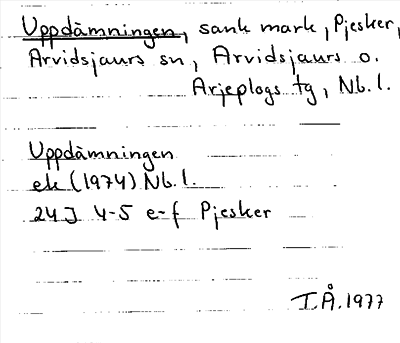 Uppdämningen, sank mark, Pjesker,
Arvidsjaurs sn, Arvidsjaurs o.
Arjeplogs tg, Nb.l.
Uppdämningen
ek (1974) Nb.l.
24J 4-5 e-f Pjesker
I.Å. 1977